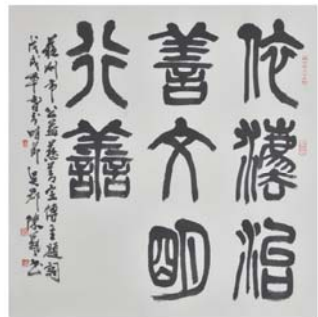 依灋治
善文明
行善
蘇州市公益慈善宣傳主題詞
戊戌年